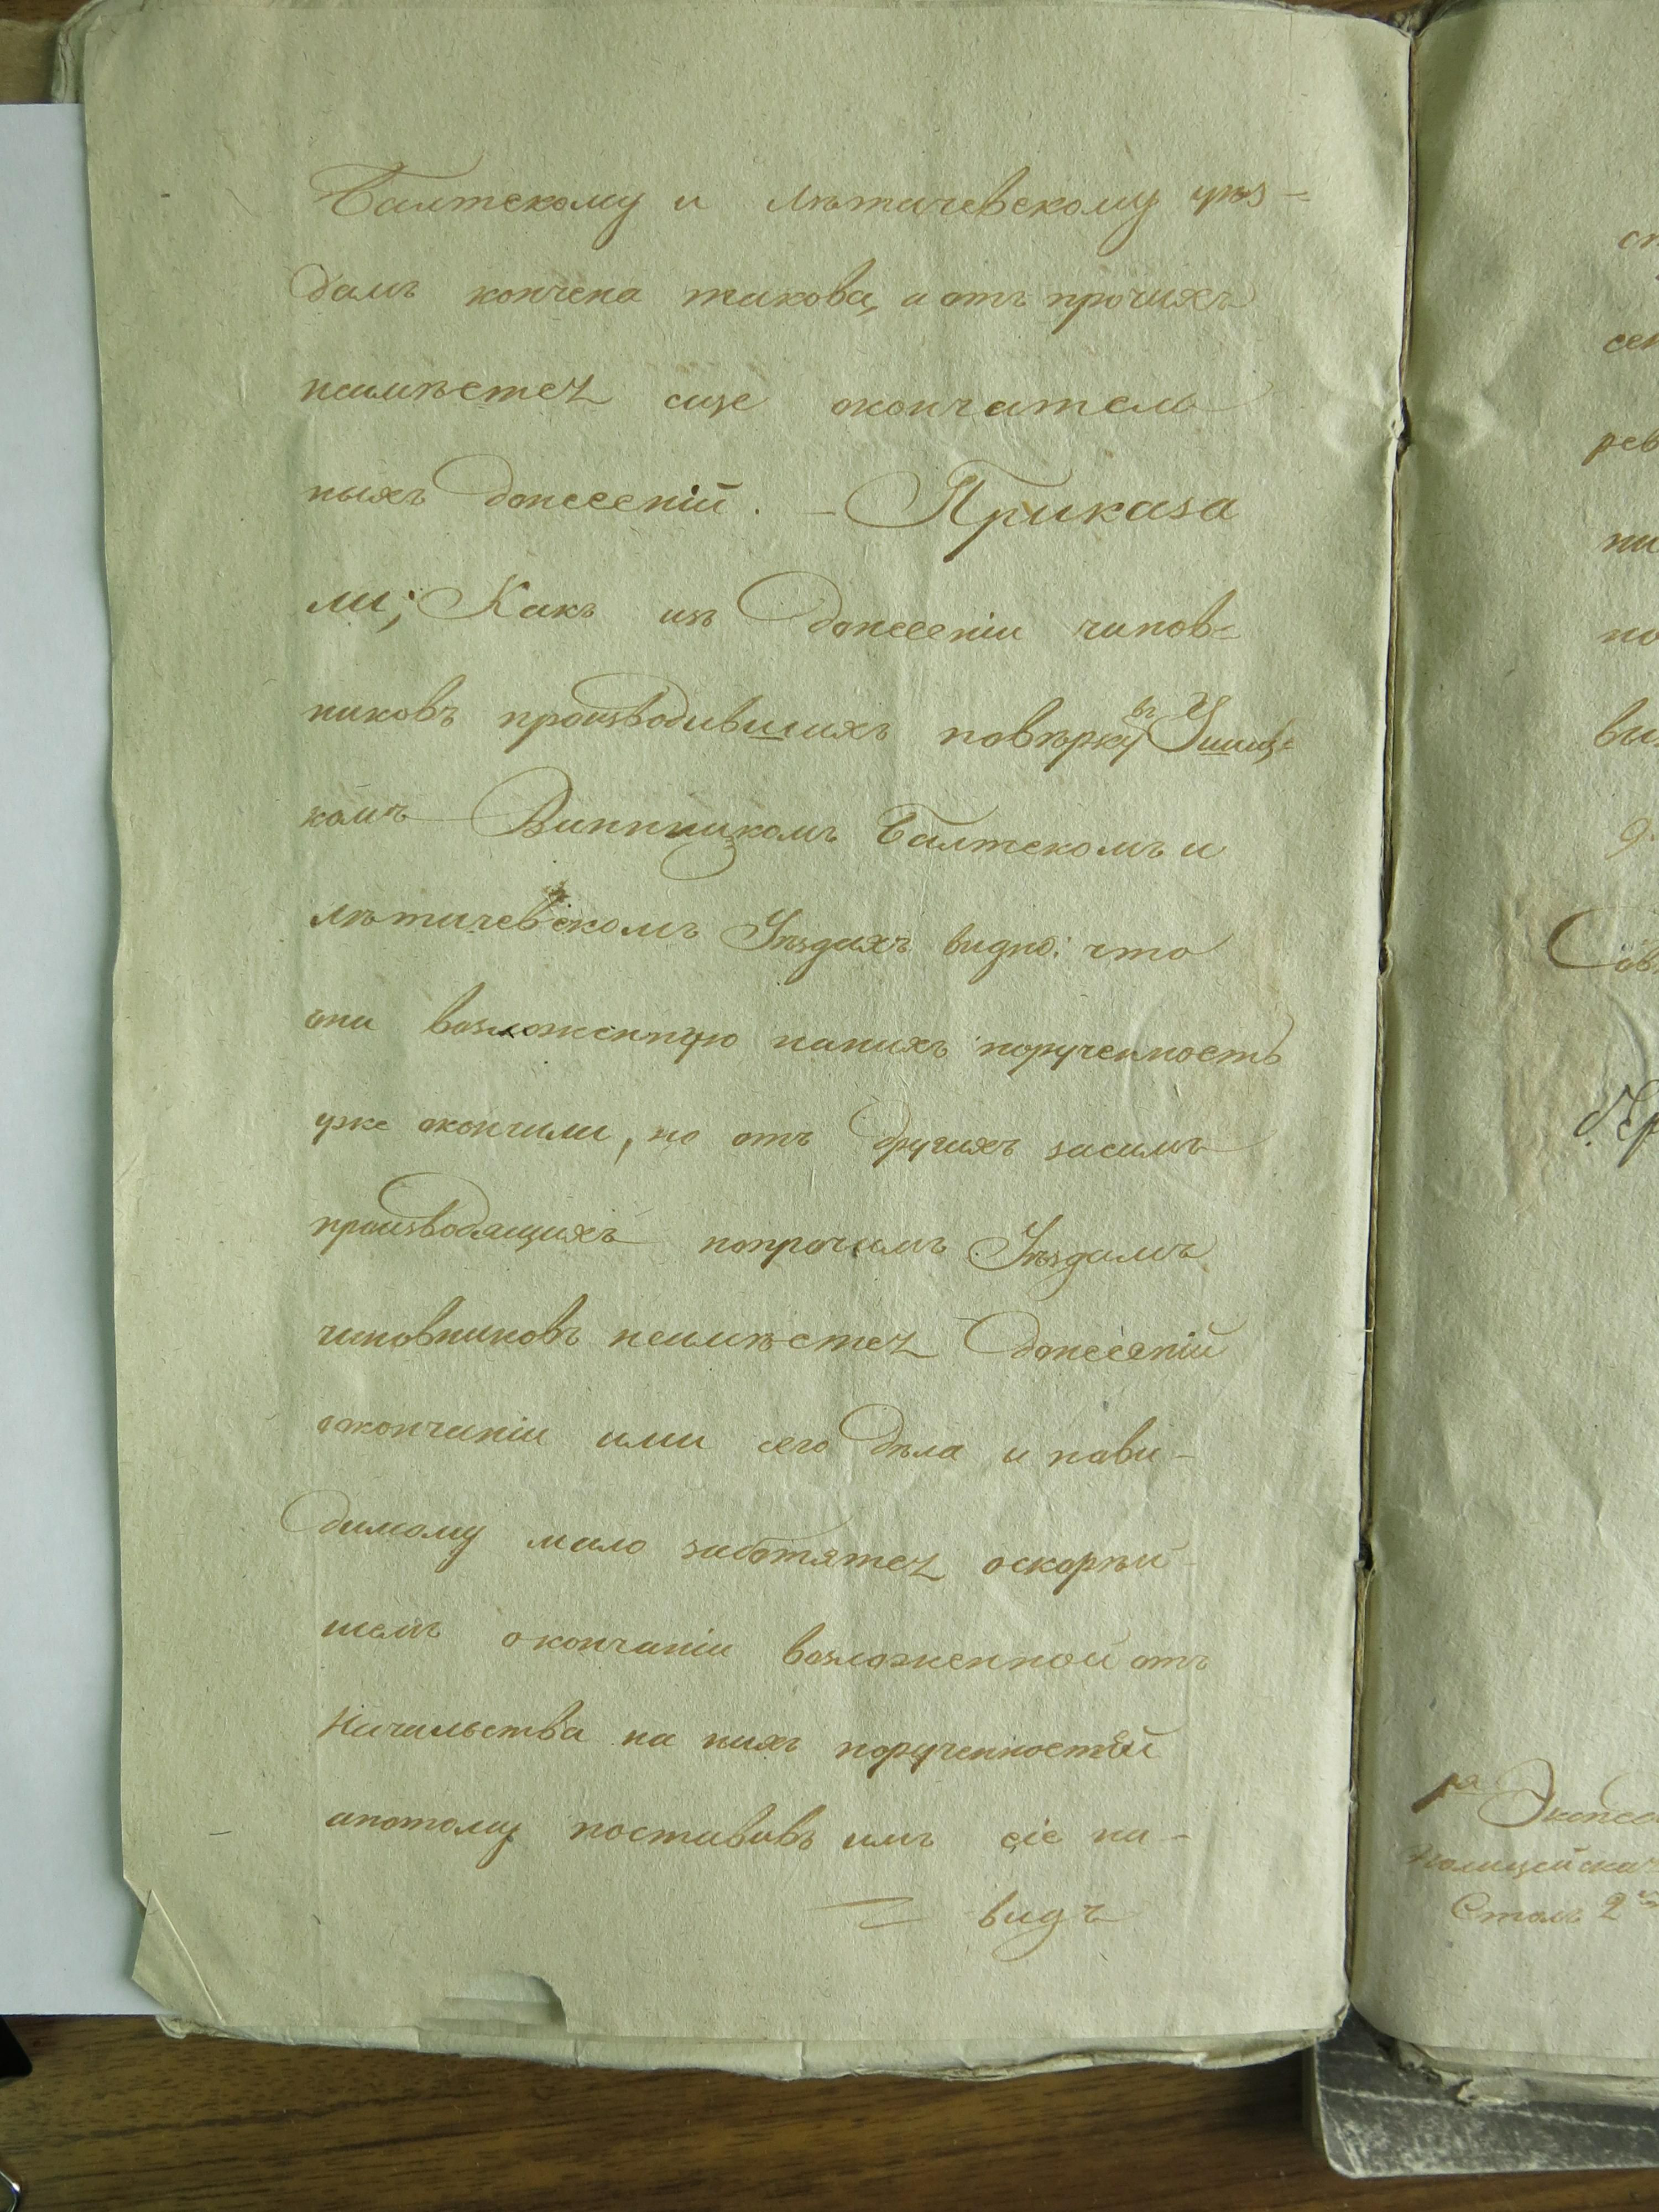 Балтскому и лѣтичевскому уѣз-
дамъ кончена такова, а отъ прочихъ
неимѣется еще окончатель
ныхъ донесеній. – Приказа
ли; Какъ изъ донесеніи чинов-
никовъ производившихъ повѣрку въ Ушиц-
комъ Винницкомъ Балтскомъ и
лѣтичевскомъ Уѣздахъ видно: что
они возложенную нанихъ порученность
уже окончили, но отъ другихъ засимъ
производящихъ попрочимъ Уѣздамъ
чиновниковъ неимѣется донесеній
окончаніи ими сего дѣла и пови-
димому мало заботятся оскорѣй-
шемъ окончаніи возложенной отъ
Начальства на нихъ порученностей
апотому поставивъ имъ сіе на-
видъ
ст
сен
рев
ни
по
вы
Сов
Экспе
Полицейская
Столъ 2